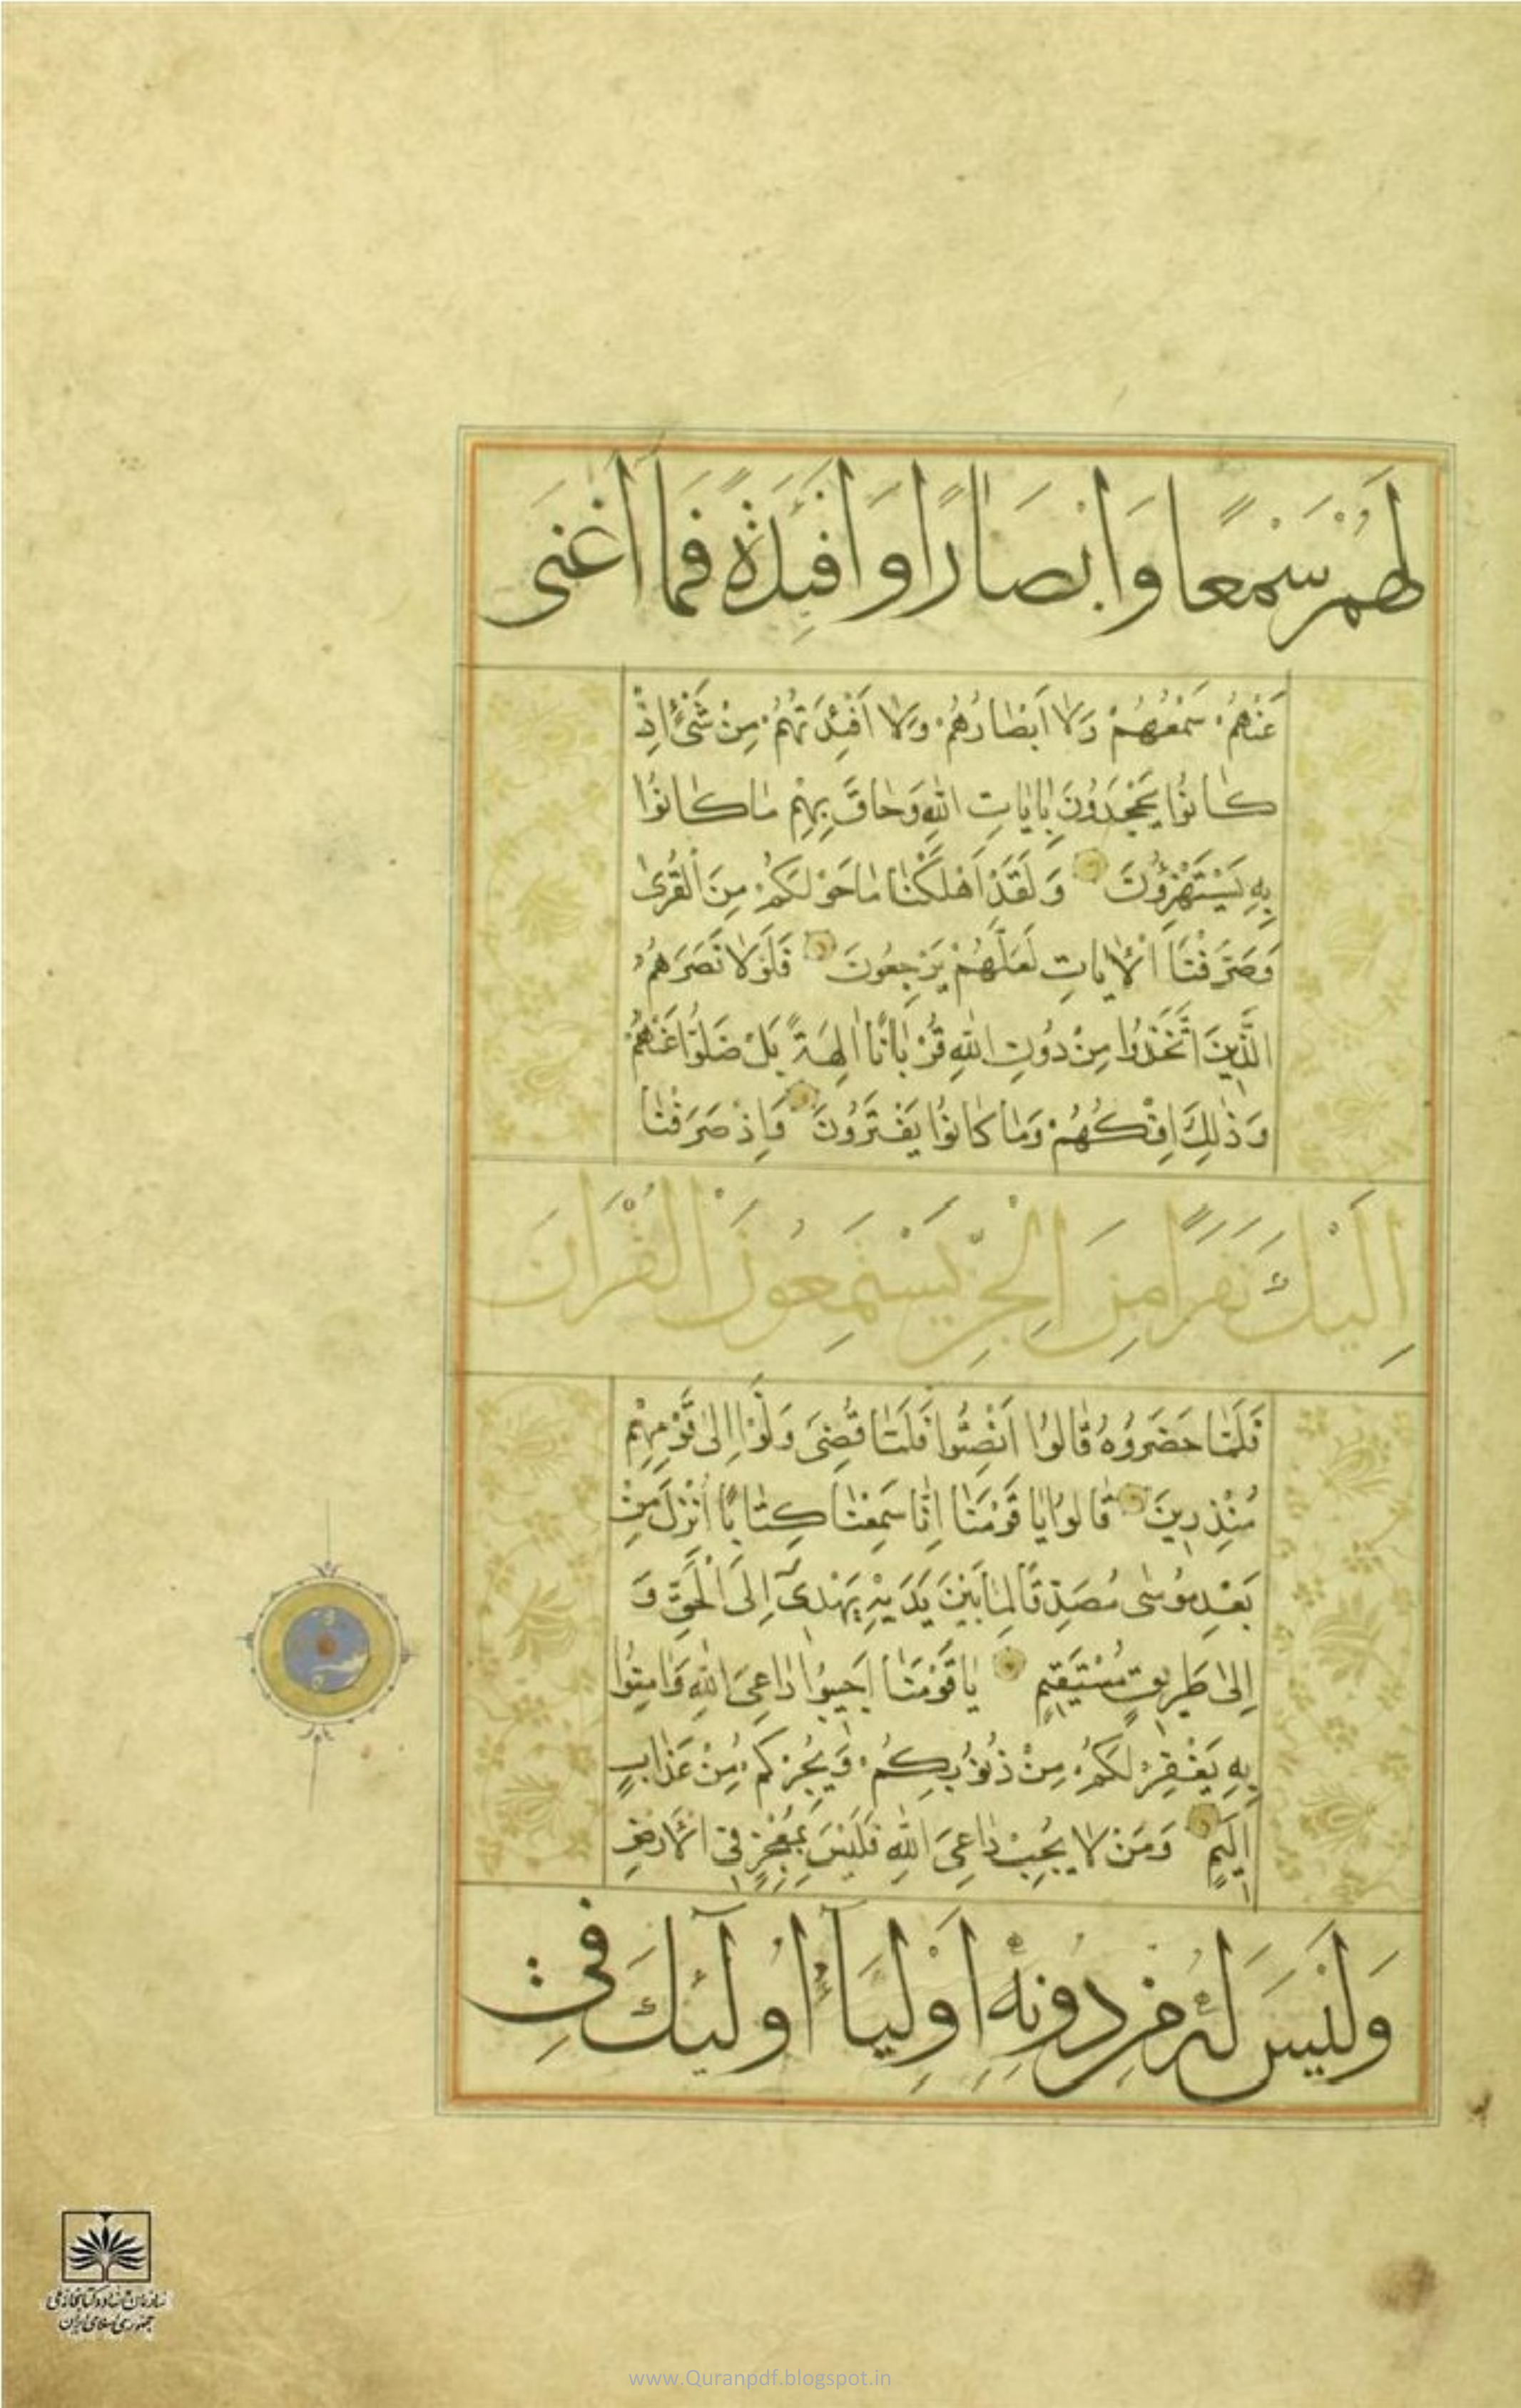 لَهُمْ سَمْعًا وَاَبْصَارًا وَاَفْئِدَةً فَمَا اَغْنٰى
عَنْهُمْ سَمْعُهُمْ وَلَا اَبْصَارُهُمْ وَلَا اَفْئِدَتُهُمْ مِنْ شَیْءٍ اِذْ
كَانُوا يَجْحَدُونَ بِاٰيَاتِ اللّٰهِ وَحَاقَ بِهِمْ مَا كَانُوا
بِهِ يَسْتَهْزِؤُنَ وَلَقَدْ اَهْلَكْنَا مَا حَوْلَكُمْ مِنَ الْقُرٰى
وَصَرَّفْنَا الْاٰيَاتِ لَعَلَّهُمْ يَرْجِعُونَ فَلَوْلَا نَصَرَهُمُ
الَّذِينَ اتَّخَذُوا مِنْ دُونِ اللّٰهِ قُرْبَانًا اٰلِهَةً بَلْ ضَلُّوا عَنْهُمْ
وَذٰلِكَ اِفْكُهُمْ وَمَا كَانُوا يَفْتَرُونَ وَاِذْ صَرَفْنَا
اِلَيْكَ نَفَرًا مِنَ الْجِنِّ يَسْتَمِعُونَ الْقُرْاٰنَ
فَلَمَّا حَضَرُوهُ قَالُوا اَنْصِتُوا فَلَمَّا قُضِیَ وَلَّوْا اِلٰى قَوْمِهِمْ
مُنْذِرِينَ قَالُوا يَا قَوْمَنَا اِنَّا سَمِعْنَا كِتَابًا اُنْزِلَ مِنْ
بَعْدِ مُوسٰى مُصَدِّقًا لِمَا بَيْنَ يَدَيْهِ يَهْدِیٓ اِلَى الْحَقِّ وَ
اِلٰى طَرِيقٍ مُسْتَقِيمٍ يَا قَوْمَنَا اَجِيبُوا دَاعِیَ اللّٰهِ وَاٰمِنُوا
بِهِ يَغْفِرْ لَكُمْ مِنْ ذُنُوبِكُمْ وَيُجِرْكُمْ مِنْ عَذَابٍ
اَلِيمٍ وَمَنْ لَا يُجِبْ دَاعِیَ اللّٰهِ فَلَيْسَ بِمُعْجِزٍ فِی الْاَرْضِ
وَلَيْسَ لَهُ مِنْ دُونِهِ اَوْلِيَآءُ اُولٰٓئِكَ فِی
سازمان اسناد و کتابخانه ملی
جمهوری اسلامی ایران
www.Quranpdf.blogspot.in